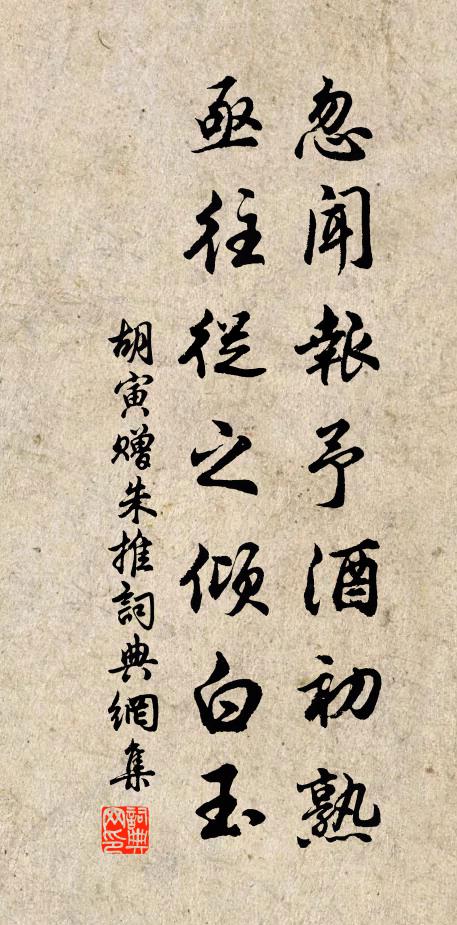 忽闻报予酒初熟
亟往从之倾白玉
胡寅赠朱推詞典網集
詞典网印